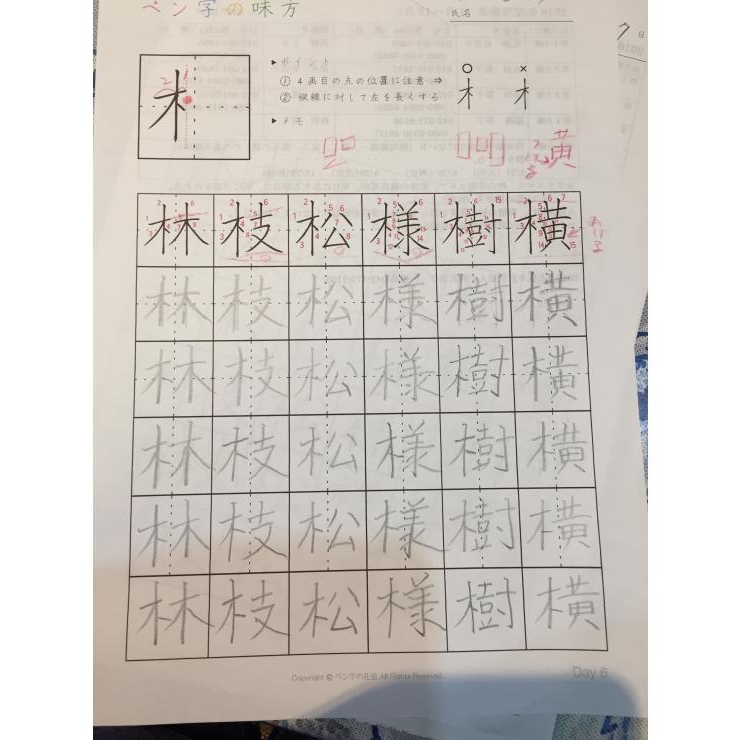 ペン字の味方
氏名
▶ポイント
① 4画目の点の位置に注意 ⇒
② 縦線に対して左を長くする
▶メモ
○ ×
林 枝 松 様 樹 横
林 枝 松 様 樹 横
林 枝 松 様 樹 横
林 枝 松 様 樹 横
林 枝 松 様 樹 横
林 枝 松 様 樹 横
Copyright © ペン字の花沼 All Rights Reserved.
Day 6